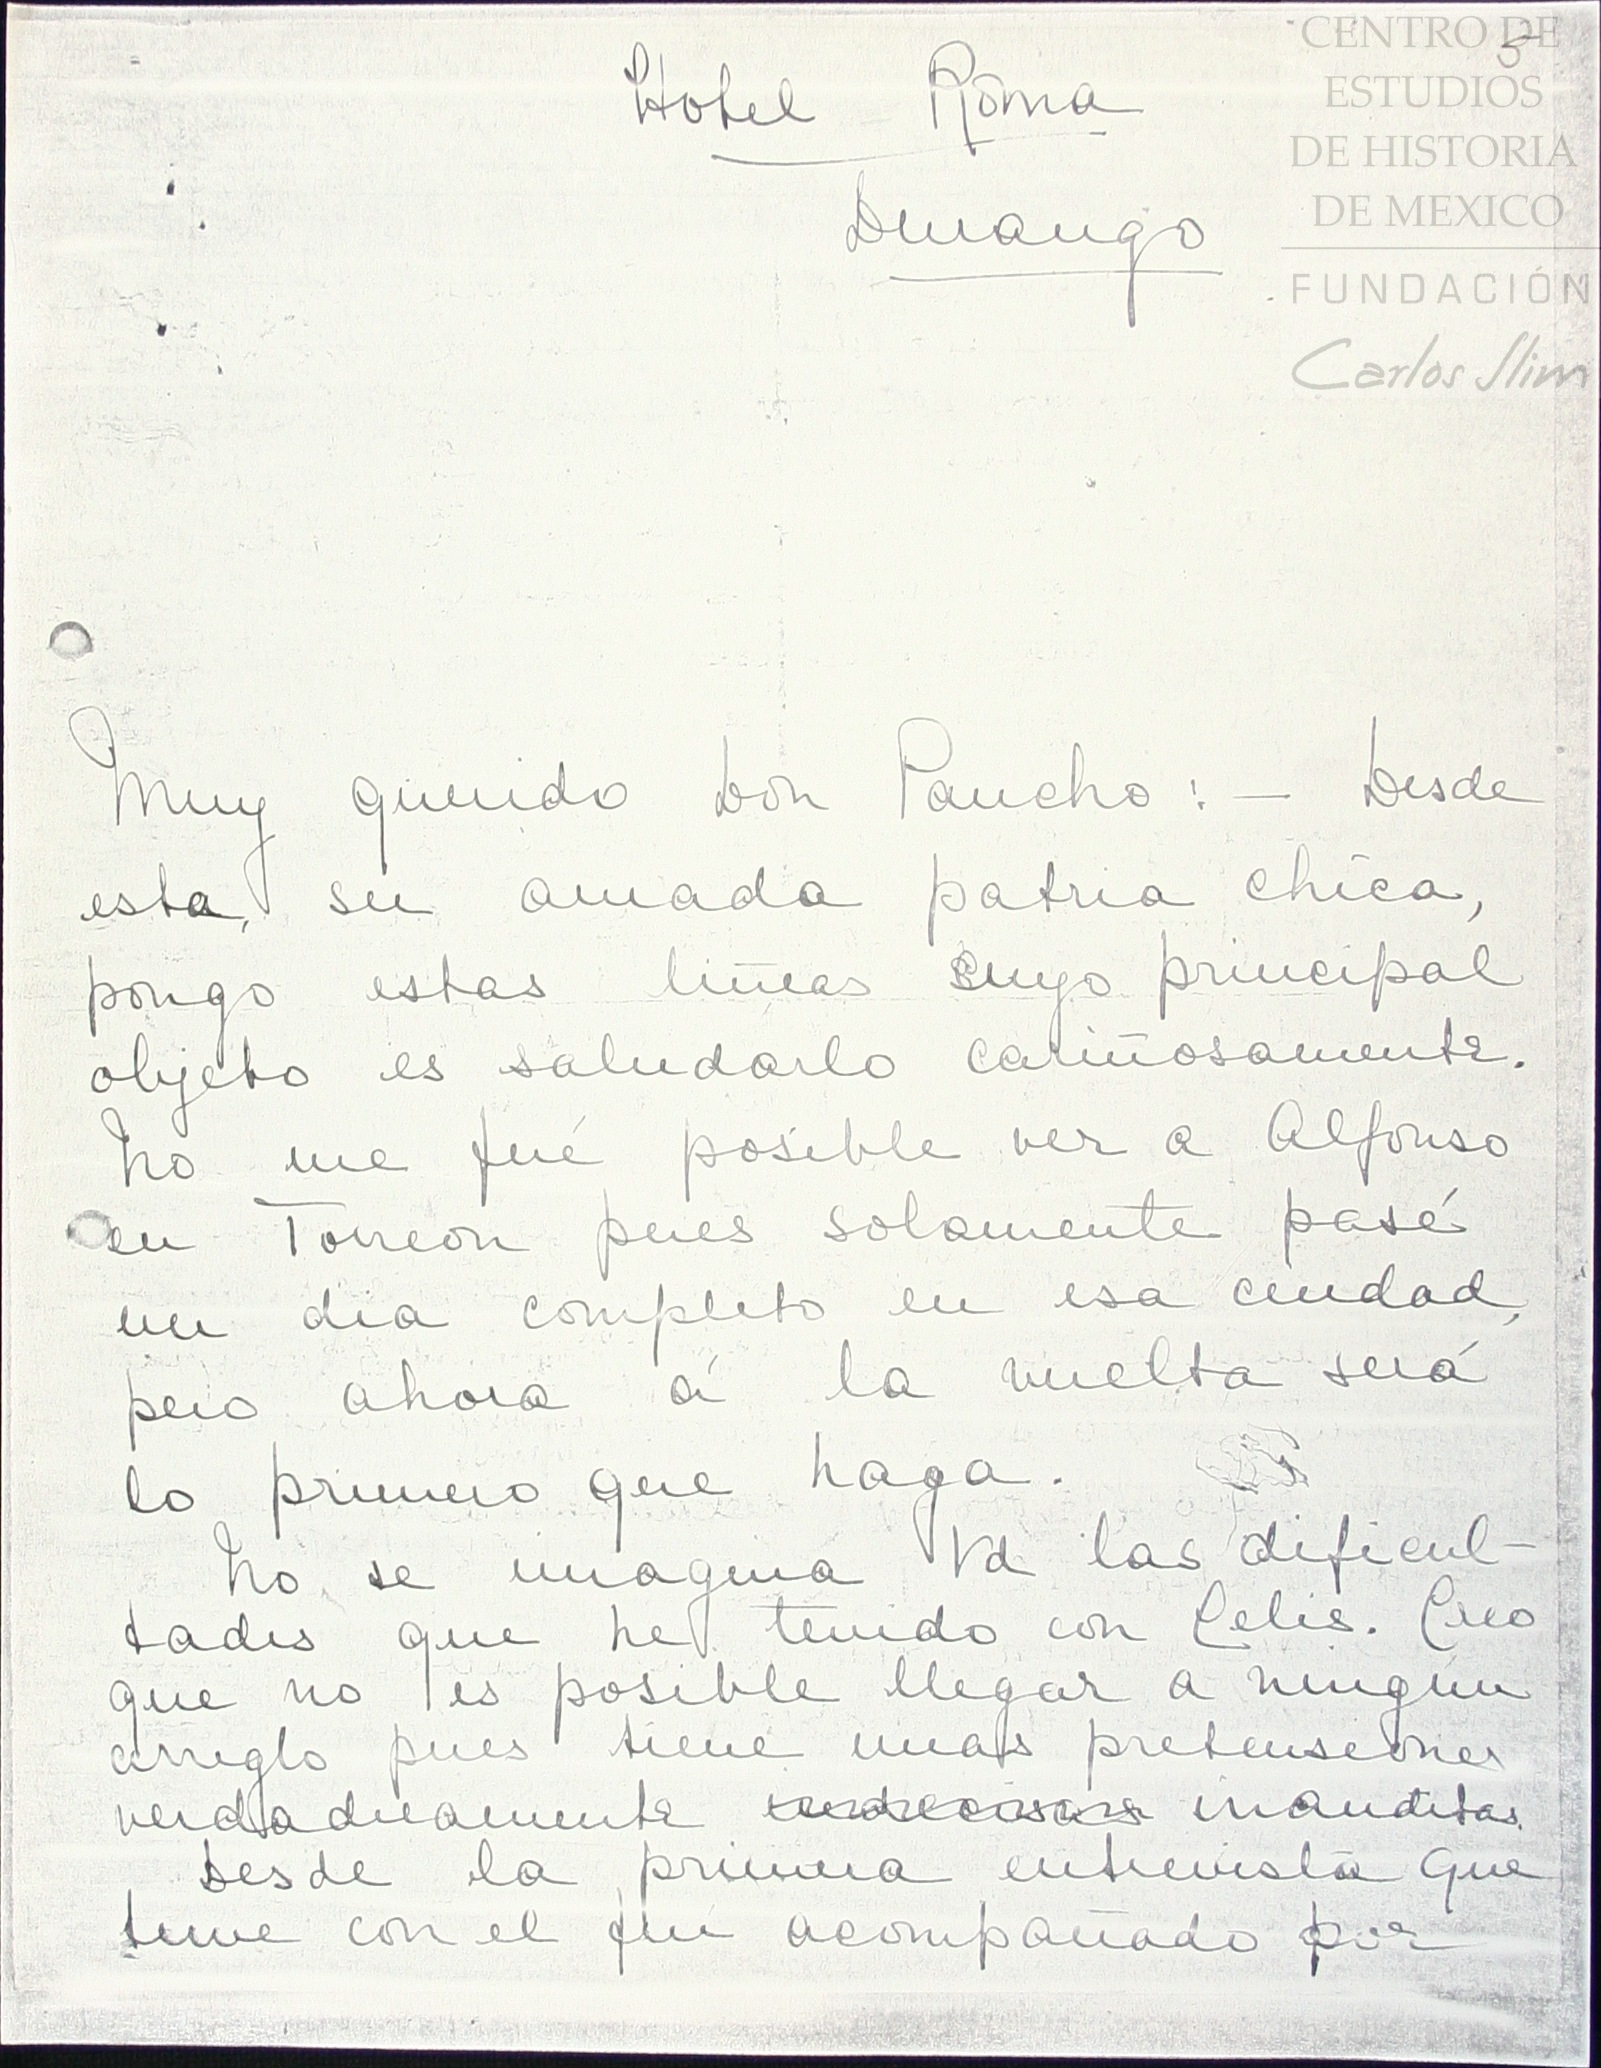 CENTRO DE
ESTUDIOS
DE HISTORIA
DE MEXICO
FUNDACIÓN
Carlos Slim
5
Hotel Roma
Durango
Muy querido Don Pancho: — Desde
esta, su amada patria chica,
pongo estas lineas cuyo principal
objeto es saludarlo cariñosamente.
No me fué posible ver a Alfonso
en Torreon pues solamente pasé
un dia completo en esa ciudad,
pero ahora á la vuelta será
lo primero que haga.
No se imagina Vd las dificul-
tades que he tenido con Celis. Creo
que no es posible llegar a ningun
arreglo pues tiene unas pretensiones
verdaderamente inauditas.
Desde la primera entrevista que
tuve con el fui acompañado por